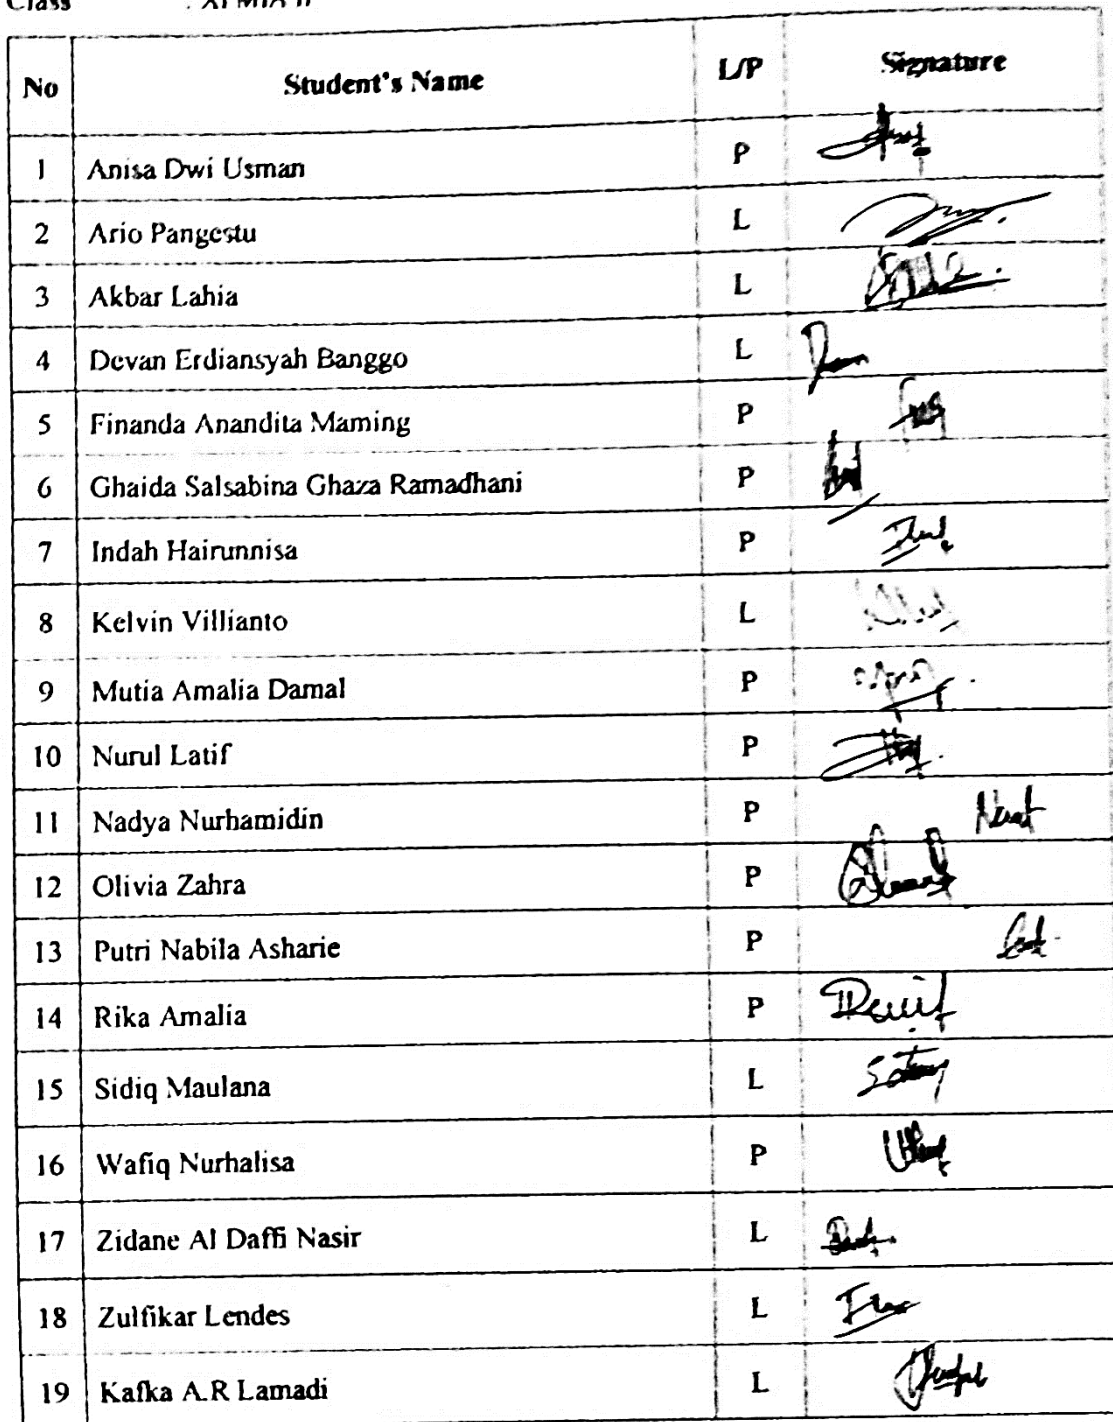 Class : XI MIA II
No Student's Name L/P Signature
1 Anisa Dwi Usman P
2 Ario Pangestu L
3 Akbar Lahia L
4 Devan Erdiansyah Banggo L
5 Finanda Anandita Maming P
6 Ghaida Salsabina Ghaza Ramadhani P
7 Indah Hairunnisa P
8 Kelvin Villianto L
9 Mutia Amalia Damal P
10 Nurul Latif P
11 Nadya Nurhamidin P
12 Olivia Zahra P
13 Putri Nabila Asharie P
14 Rika Amalia P
15 Sidiq Maulana L
16 Wafiq Nurhalisa P
17 Zidane Al Daffi Nasir L
18 Zulfikar Lendes L
19 Kafka A.R Lamadi L